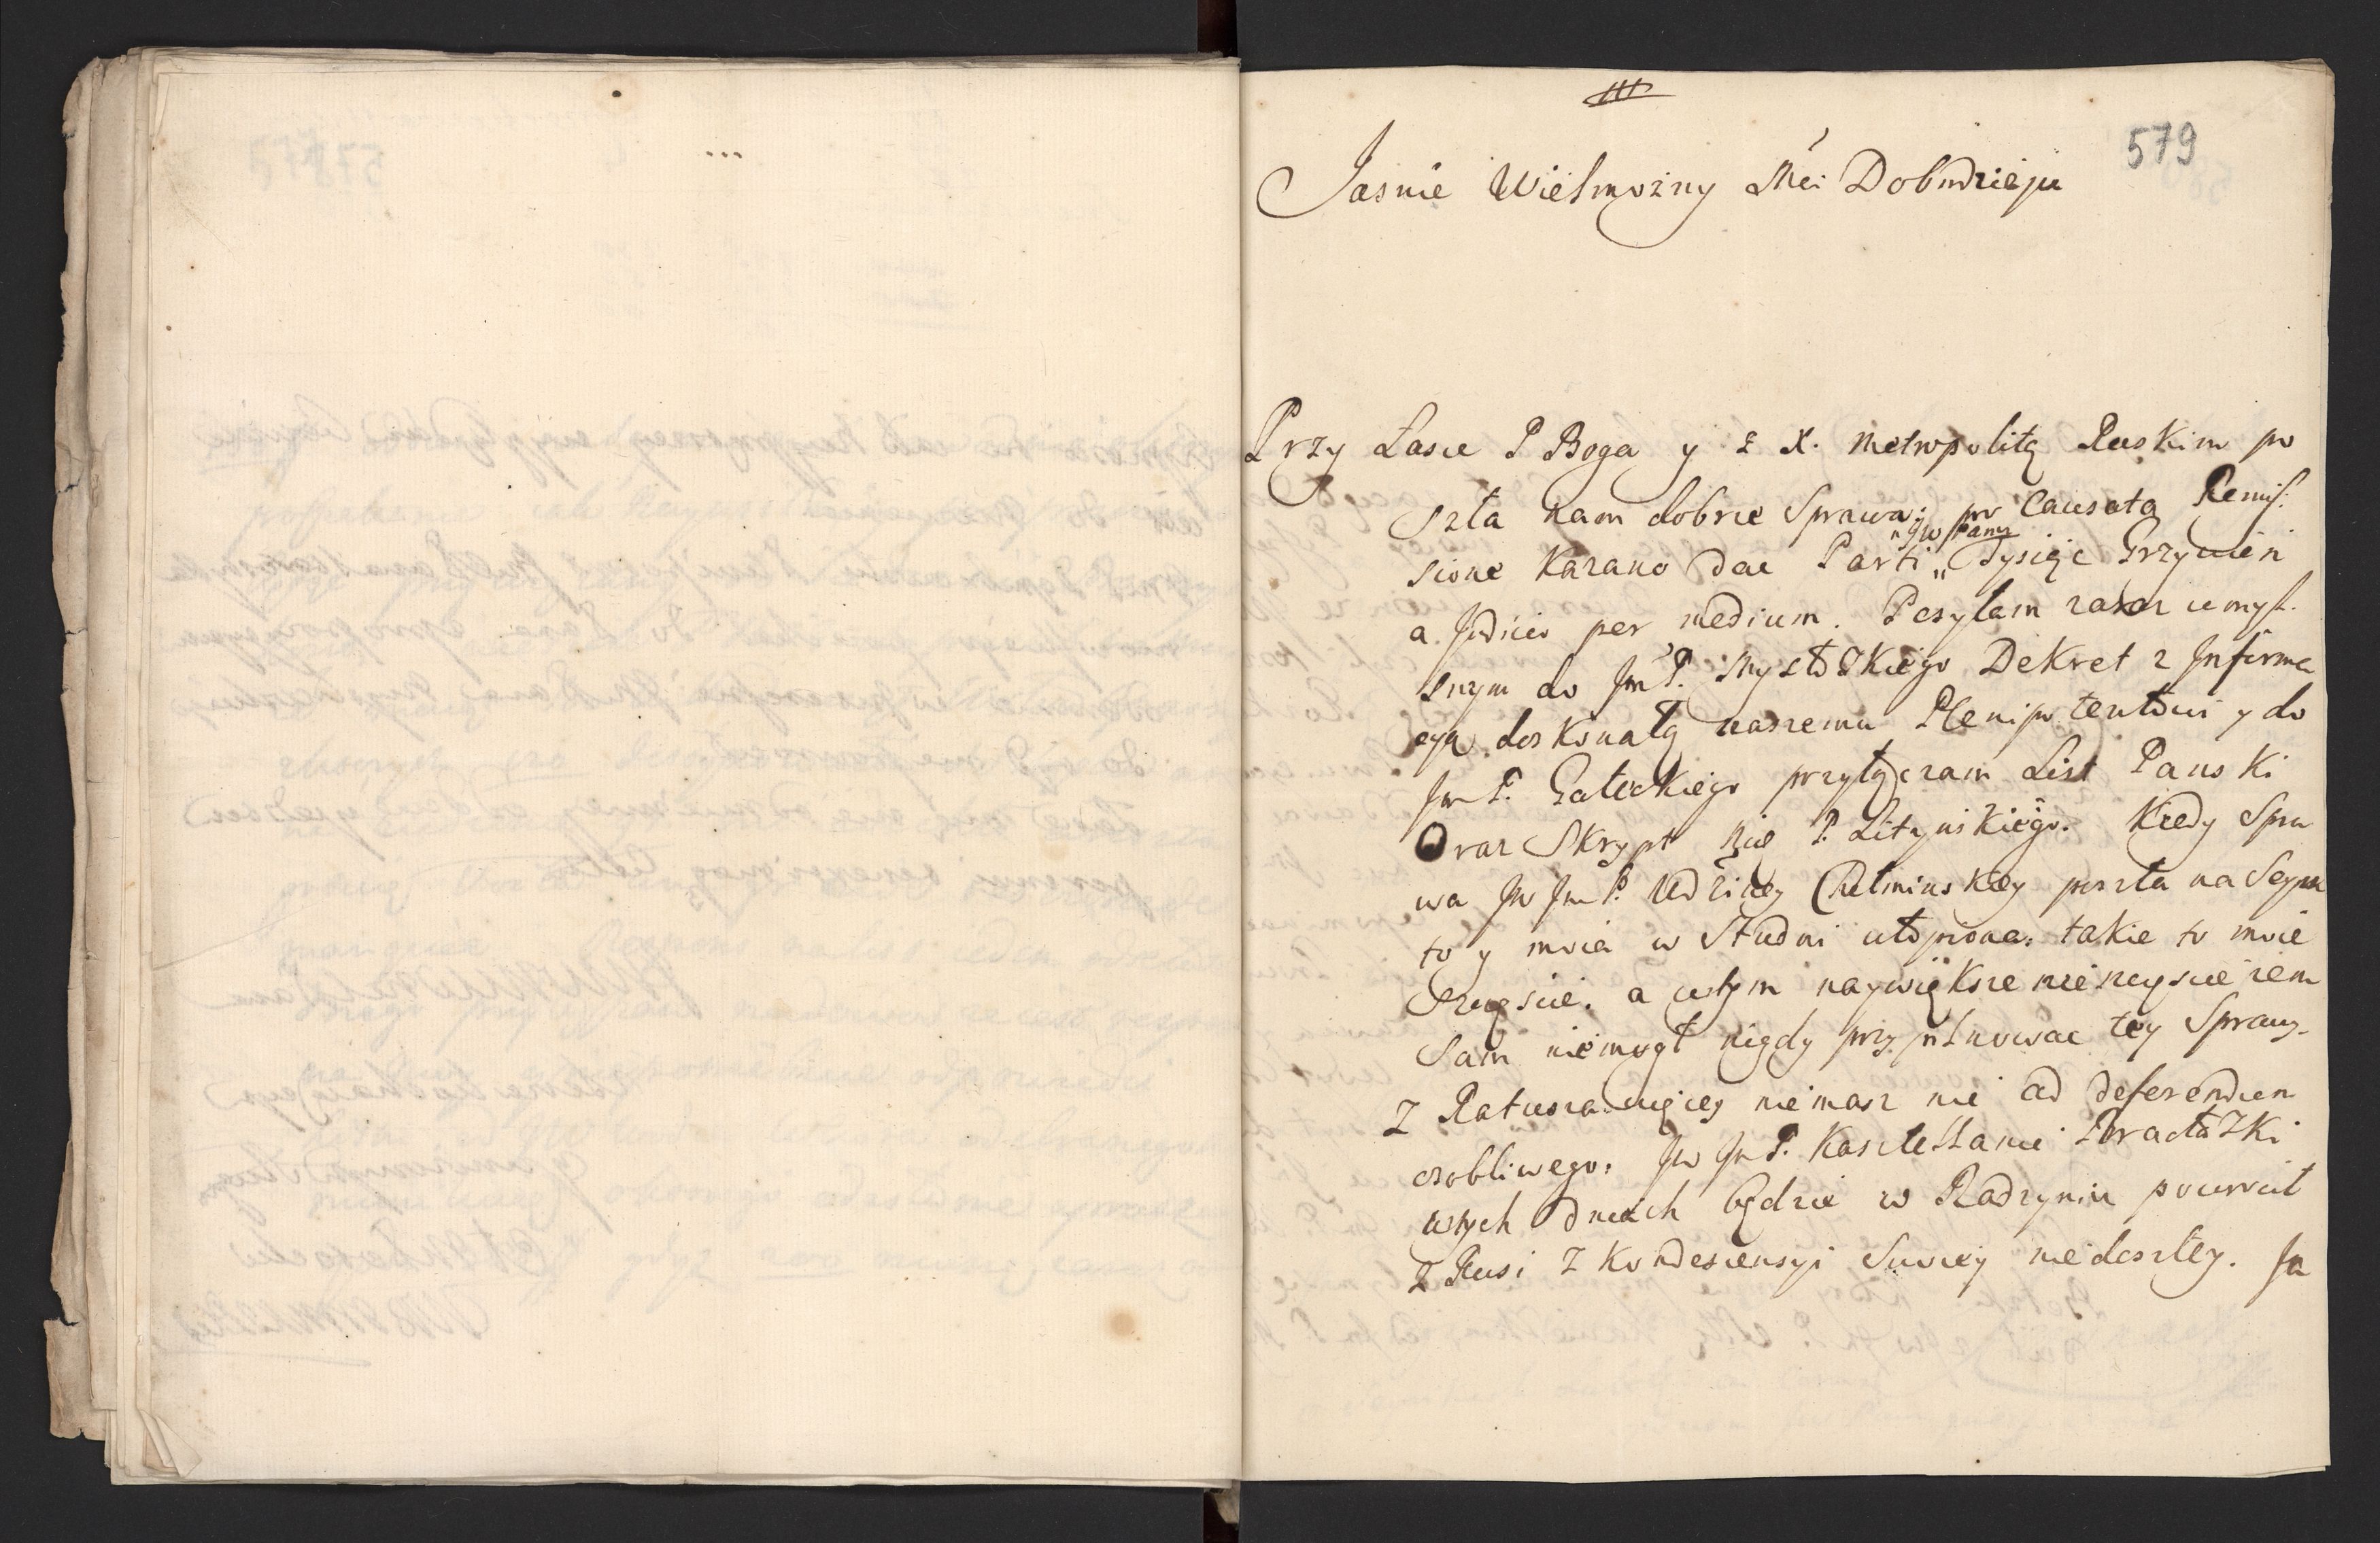 579
Jasnie Wielmozny Mci Dobrodzieju
Przy Łasce P Boga y z X. Metropolitą Ruskim po
szła nam dobrze Sprawa; pro Causata Remis:
sione kazano dac Parti „ Tysiąc Grzywien
„Jw Panu
a Judicio per medium. Posyłam zaraz umysl.
snym do Jm P. Mysłoskiego Dekret z Informa
cyą doskonałą naszemu Plenipotentowi y do
Jm P. Gałeckiego przyłączam List Panski
Oraz Skrypt P. Lityńskiego. Kiedy Spra
wa Jw Jm P. Chełminskiey poszła na Seym
to y moia w Studni utopiona: takie to moie
Szczęscie. a w tym naywiększe nieszczęscie zem
Sam niemogł nigdy przypilnowac tey Sprawy.
Z Ratusza więcey niemasz nic ad deferendum
osobliwego: Jw Jm P. Kasztellanic Bracławski
w tych dniach będzie w Radzyniu powrocił
z Rusi z Kondescensyi Swoiey niedoszłey. Ja